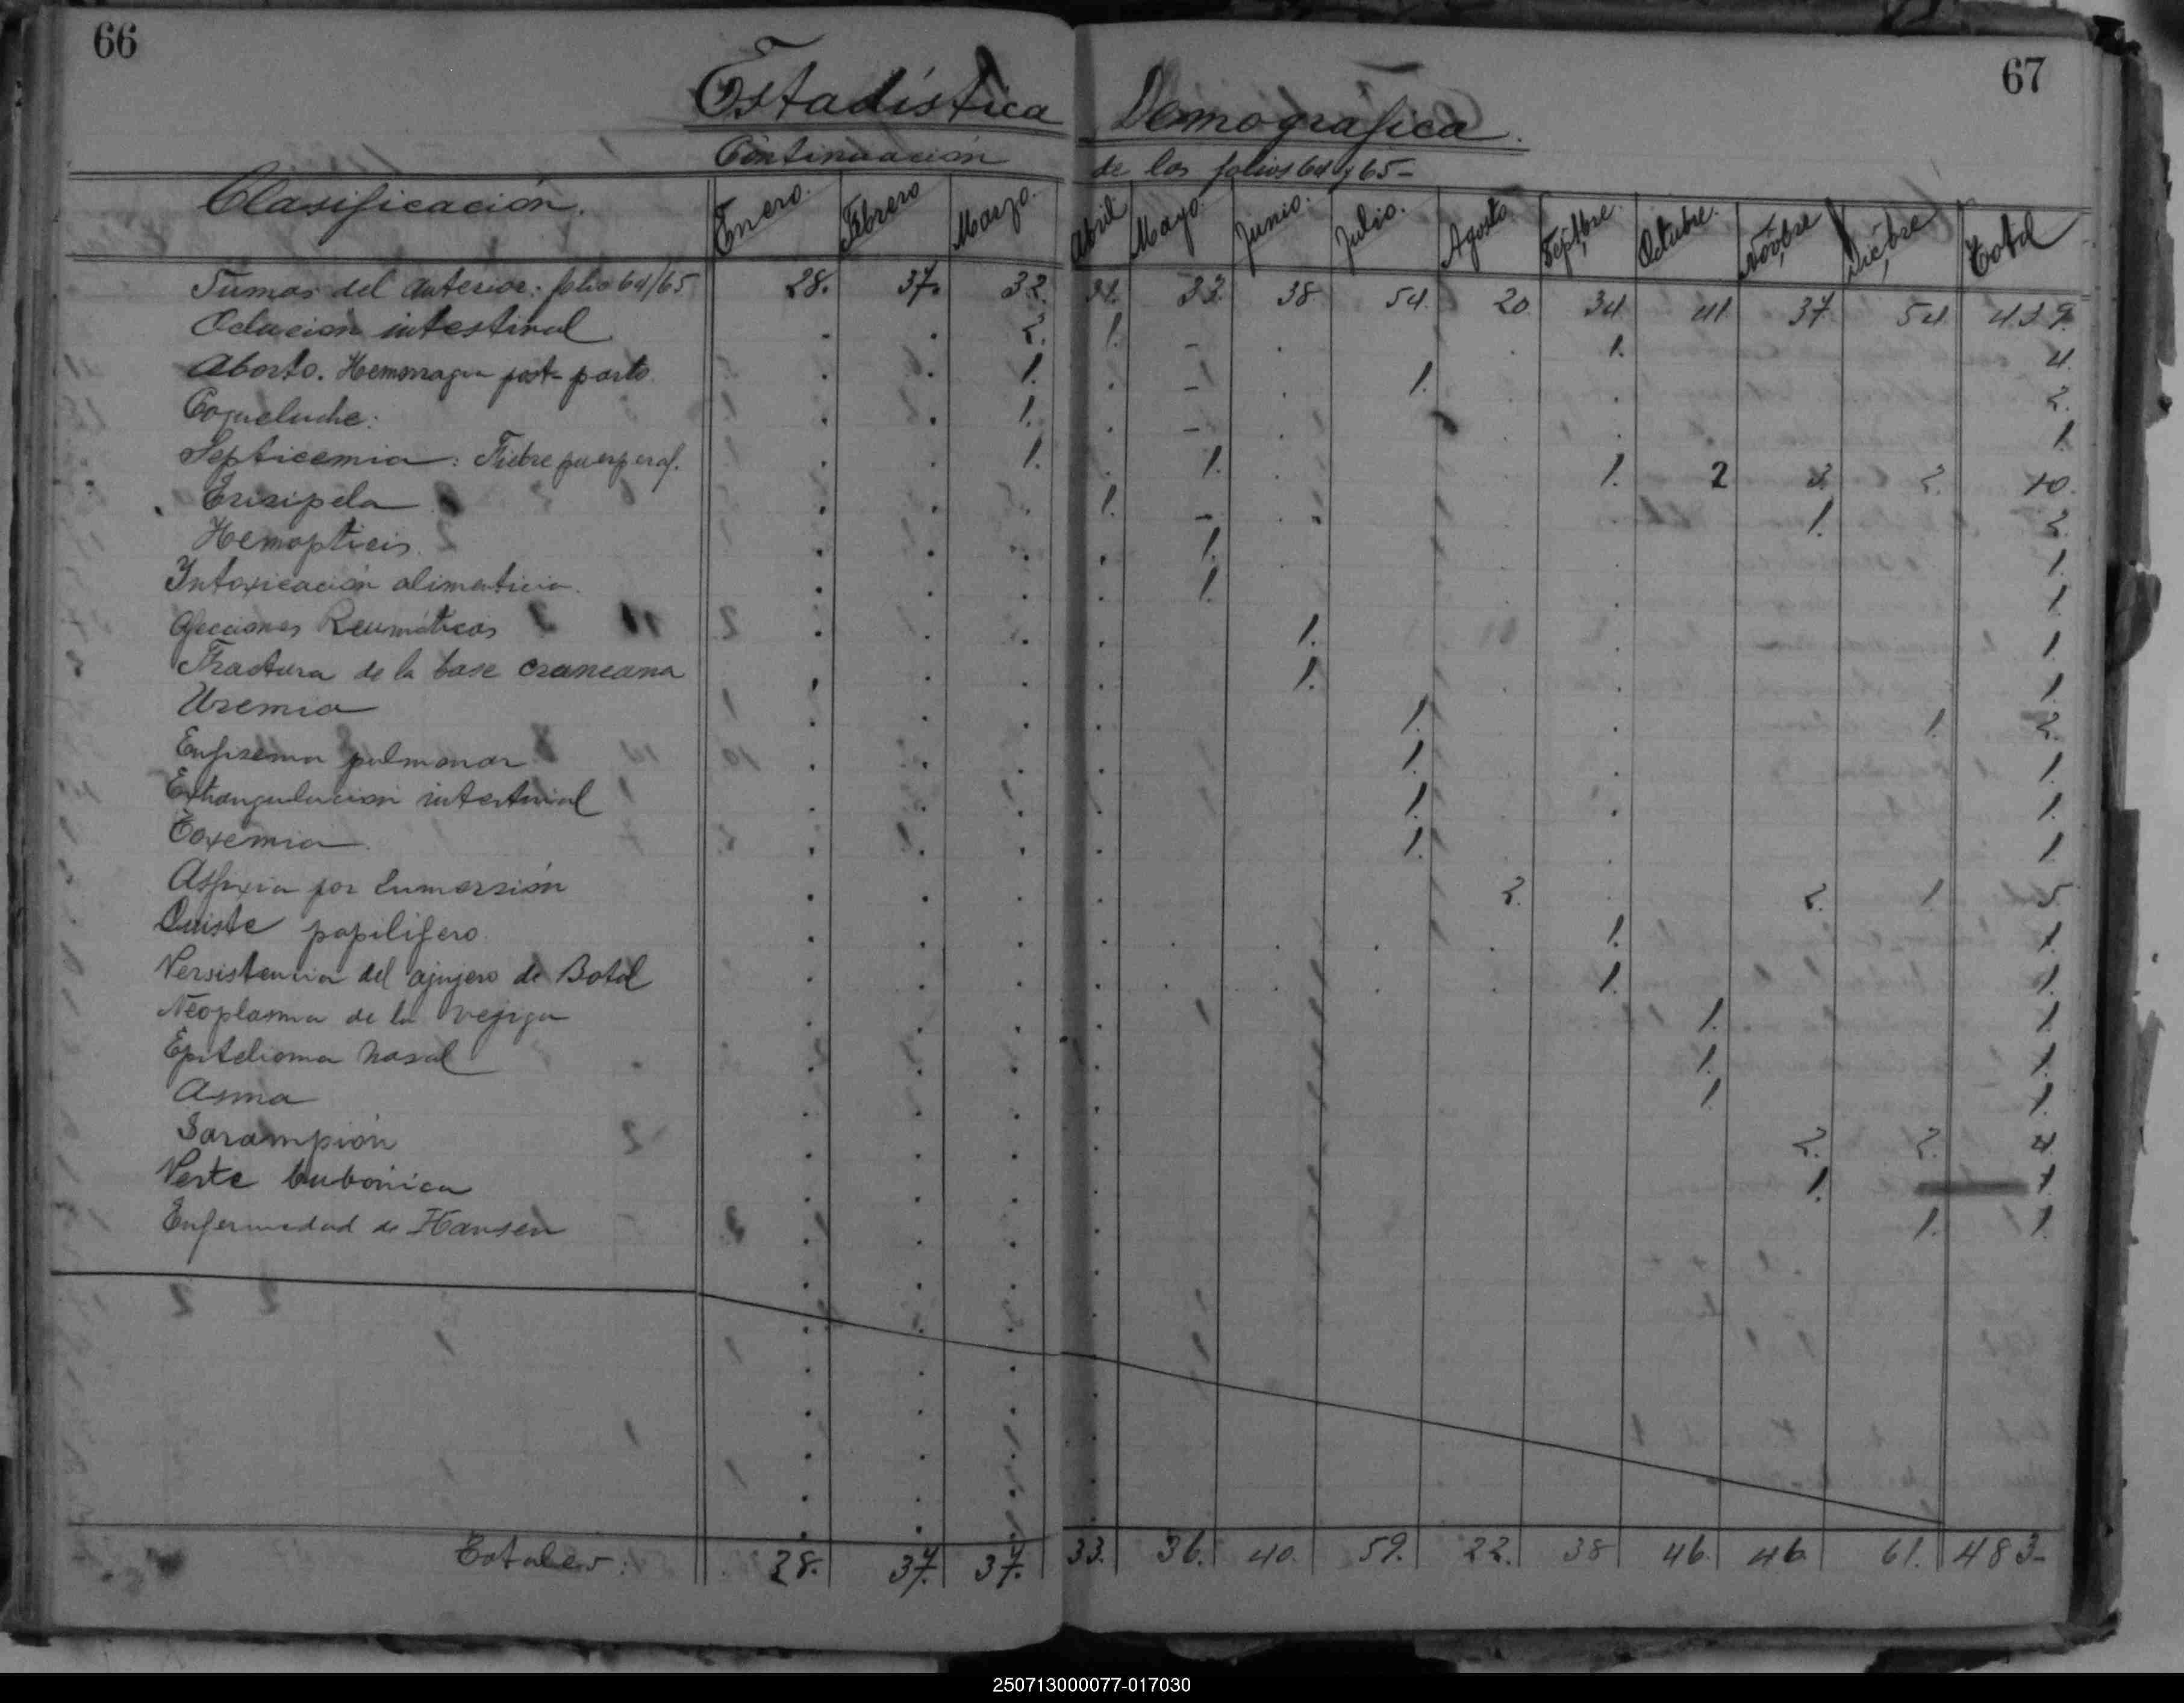 66
67
Estadística Demografica.
Continuacion de los folios 64 y 65-
Clasificación. Enero. Febrero Marzo. Abril Mayo. Junio. Julio. Agosto. Septbre. Octubre. Novbre Dicbre Total
Sumas del anterior: folio 64/65 28. 37. 32. 31. 33. 38 54. 20. 34. 41. 37. 54 439.
Oclucion intestinal . . 2. 1. - . . 1. 4.
Aborto. Hemorragia post-parto. . . 1. . - . 1. . . 2.
Coqueluche: . . 1. . - . . . 1.
Septicemia: Fiebre puerperal. . . 1. . 1. 1. 2 3. 2. 10.
Erisipela . . . 1. - . . 1. 2.
Hemopticis . . . . 1. 1.
Intoxicación alimenticia. . . . . 1. . 1.
Afecciones Reumáticas . . . . 1. . 1.
Fractura de la base craneana . . . . 1. . 1.
Uremia . . . . 1. . 1. 2.
Enfisema pulmonar . . . . 1. . 1.
Extrangulacion intestinal . . . . 1. . 1.
Toxemia . . . . 1. . 1.
Asfixia por Inmersión . . . . 2. . 2. 1. 5.
Quiste papilifero. . . . . . . . . 1. 1.
Persistencia del ajujero de Botal . . . . . . . . 1. 1.
Neoplasma de la vejiga . . . . 1. 1.
Epitelioma nasal . . . . 1. 1.
Asma . . . . 1. 1.
Sarampión . . . . 2. 2. 4.
Peste bubónica . . . . 1. 1.
Enfermedad de Hansen . . . . 1. 1.
Totales: 28. 37. 37. 33. 36. 40. 59. 22. 38 46. 46. 61. 483-
250713000077-017030